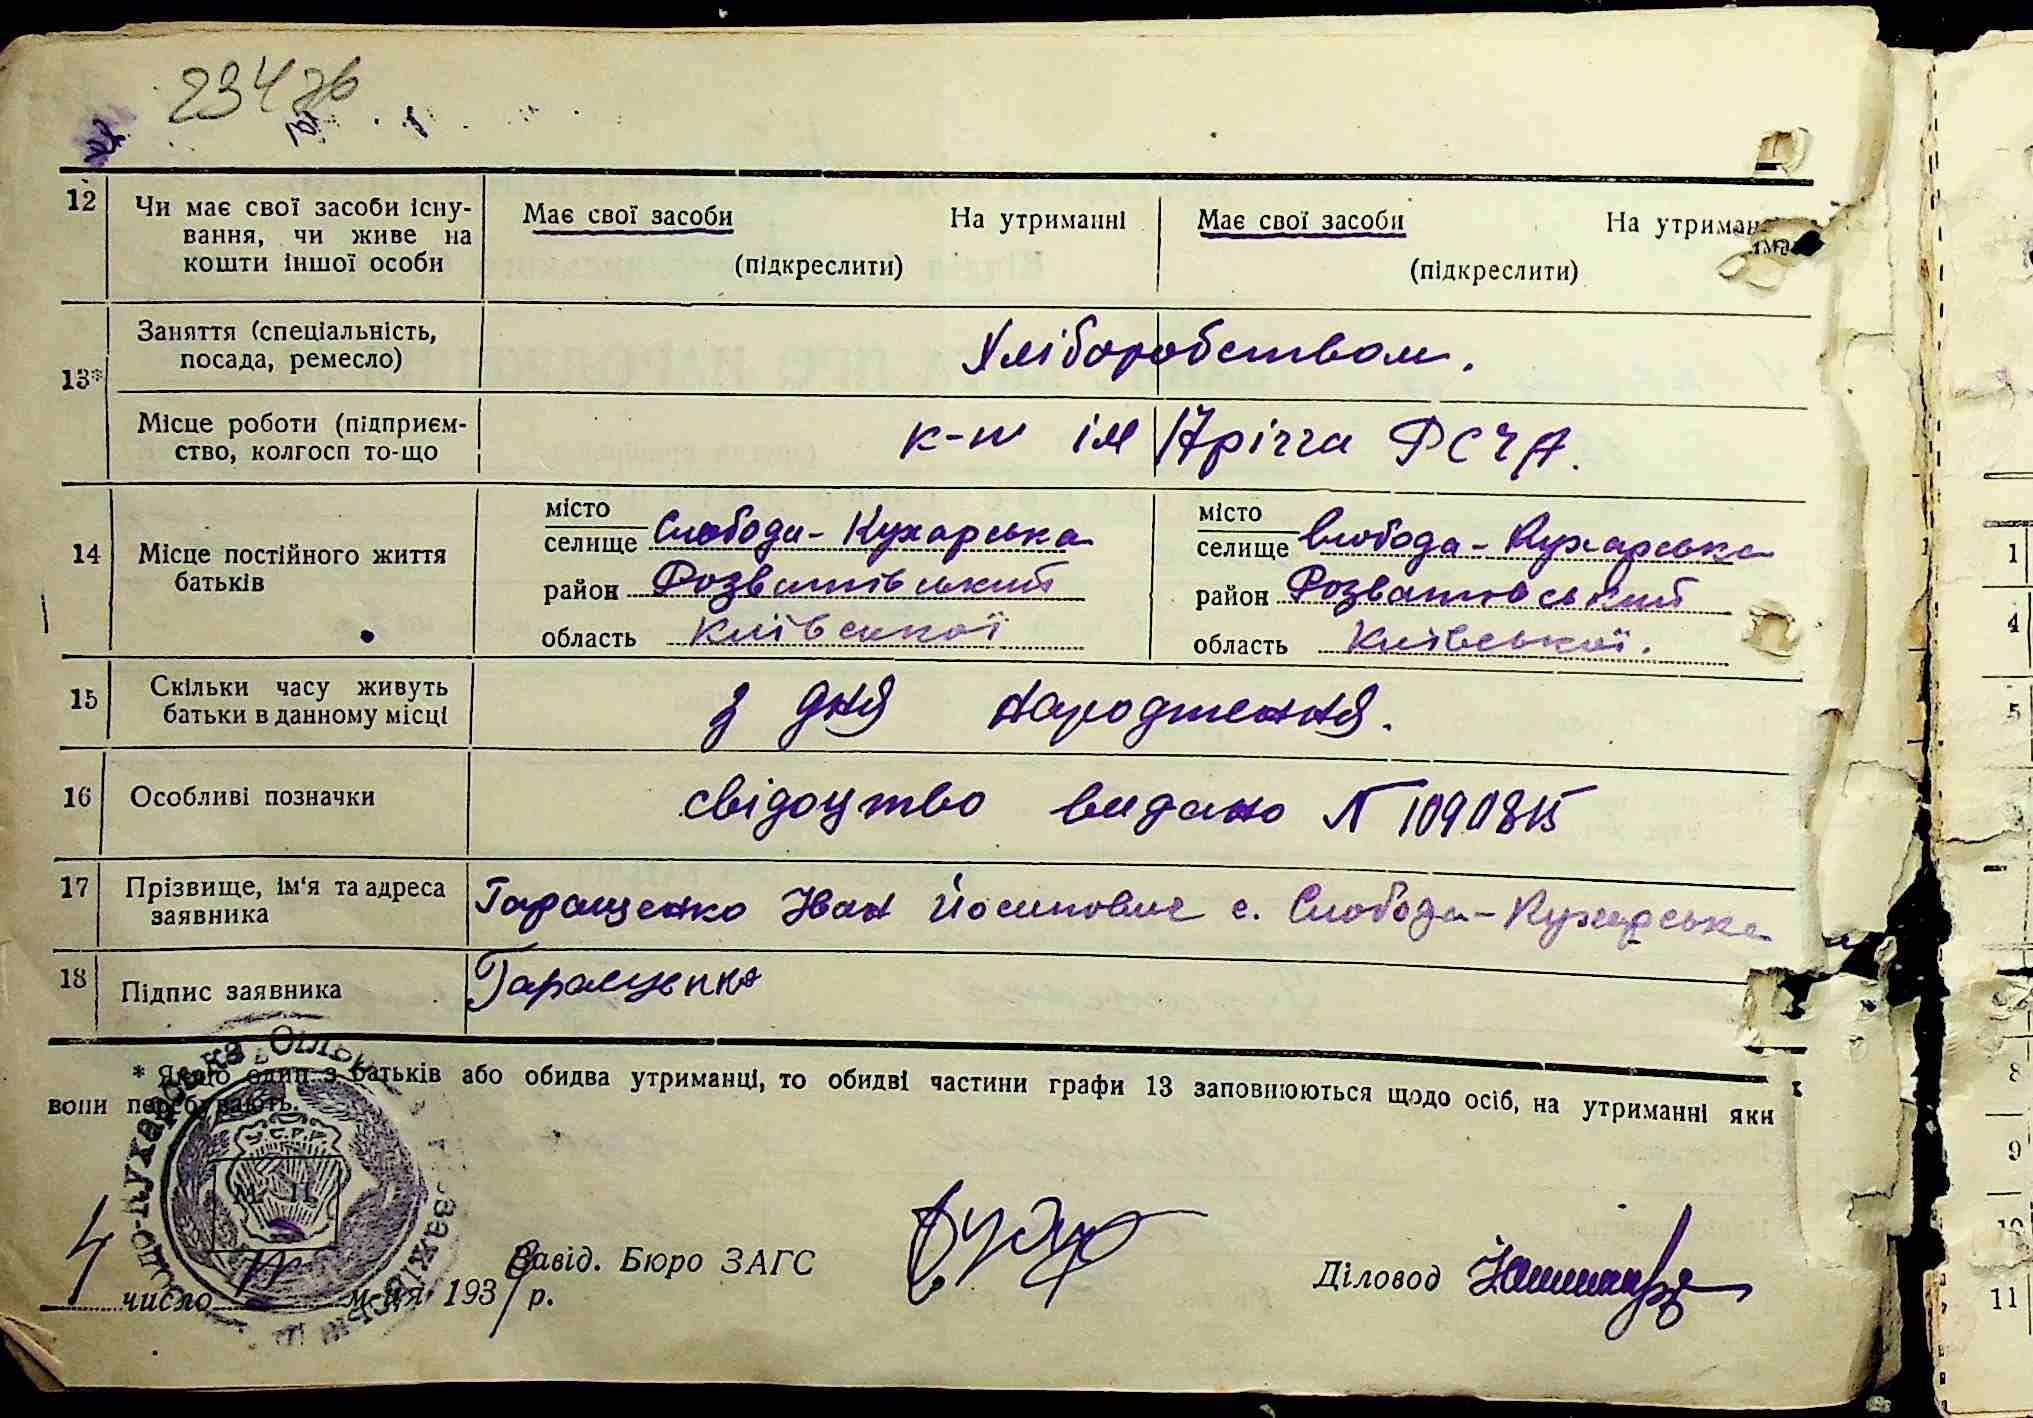 234 зв
12 Чи має свої засоби існу- Має свої засоби На утриманні Має свої засоби На утриман
вання, чи живе на
кошти іншої особи (підкреслити) (підкреслити)
Заняття (спеціальність,
посада, ремесло) Хліборобством.
13*
Місце роботи (підприєм- к-п ім Арічча РСЧА.
ство, колгосп то-що
місто місто
14 Місце постійного життя селище Слобода-Кухарська селище Слобода-Кухарська
батьків район Розважівський район Розважівський
область Київської область Київської.
15 Скільки часу живуть з дня народження.
батьки в данному місці
16 Особливі позначки свідоцтво видано N 1090815
17 Прізвище, ім'я та адреса Гаращенко Іван Йосипович с. Слобода-Кухарська
заявника
18 Підпис заявника Гаращенко
* Якщо один з батьків або обидва утриманці, то обидві частини графи 13 заповнюються щодо осіб, на утриманні яки
вони перебувають.
У.С.Р.Р.
М. П.
4 число м-ця 193 р. Завід. Бюро ЗАГС Діловод
1
4
5
8
9
10
11